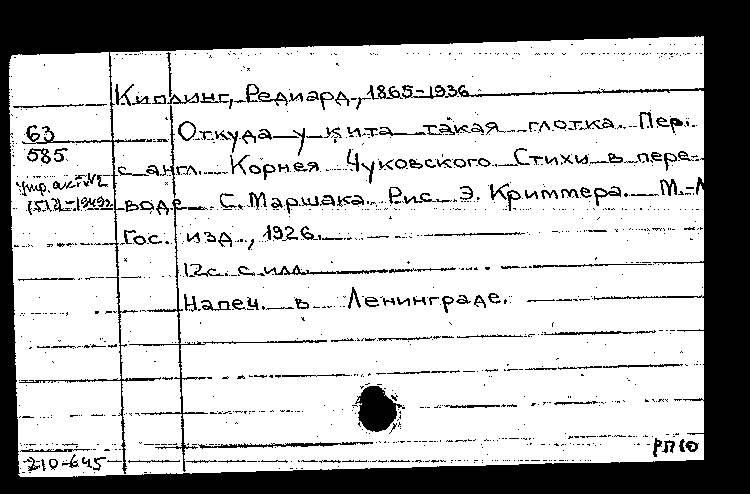 Киплинг, Редиард, 1865-1936.
63
585
Откуда у кита такая глотка. Пер.
с англ. Корнея Чуковского. Стихи в пере-
воде С. Маршака. Рис. Э. Криммера. М.-Л
Гос. изд., 1926.
12с. с илл.
Напеч. в Ленинграде.
210-645
РП10